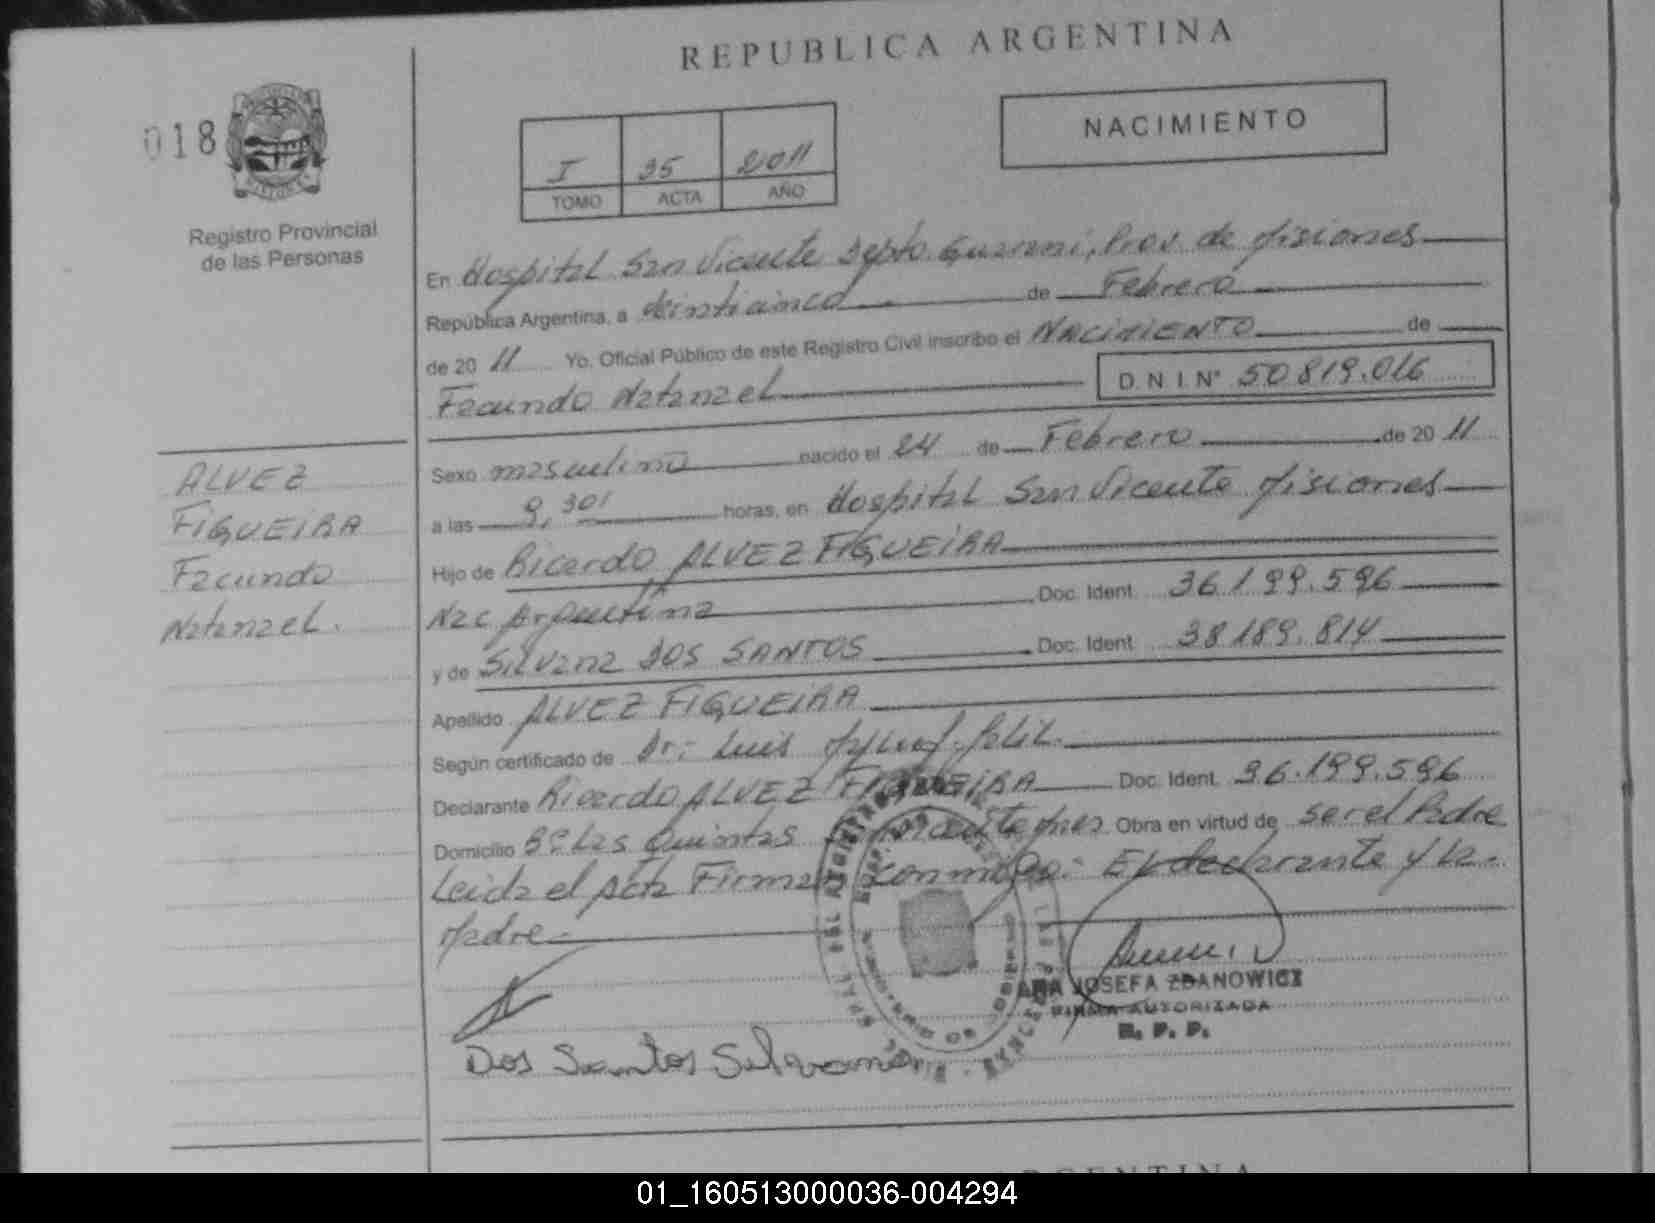 REPUBLICA ARGENTINA
018
NACIMIENTO
I 35 2011
TOMO ACTA AÑO
Registro Provincial
de las Personas
En Hospital San Vicente Depto. Guaraní, Prov. de Misiones
República Argentina, a Veinticinco de Febrero
de 2011 Yo, Oficial Público de este Registro Civil inscribo el NACIMIENTO de
Facundo Natanael D.N.I.Nº 50819.016
Sexo masculino nacido el 24 de Febrero de 2011
a las 9,30' horas, en Hospital San Vicente Misiones
Hijo de Ricardo ALVEZ FIGUEIRA
Nac Argentina Doc. Ident. 36.199.596
y de Silvana DOS SANTOS Doc. Ident. 38189.814
Apellido ALVEZ FIGUEIRA
Según certificado de Dr: Luis
Declarante Ricardo ALVEZ FIGUEIRA Doc. Ident. 36.199.596
Domicilio Bº Las Quintas Obra en virtud de ser el Padre
Leida el Acta Firman conmigo: El declarante y la
Madre
ALVEZ
FIGUEIRA
Facundo
Natanael.
ANA JOSEFA ZDANOWICZ
FIRMA AUTORIZADA
R. P. P.
Dos Santos Silvana
ARGENTINA
01_160513000036-004294